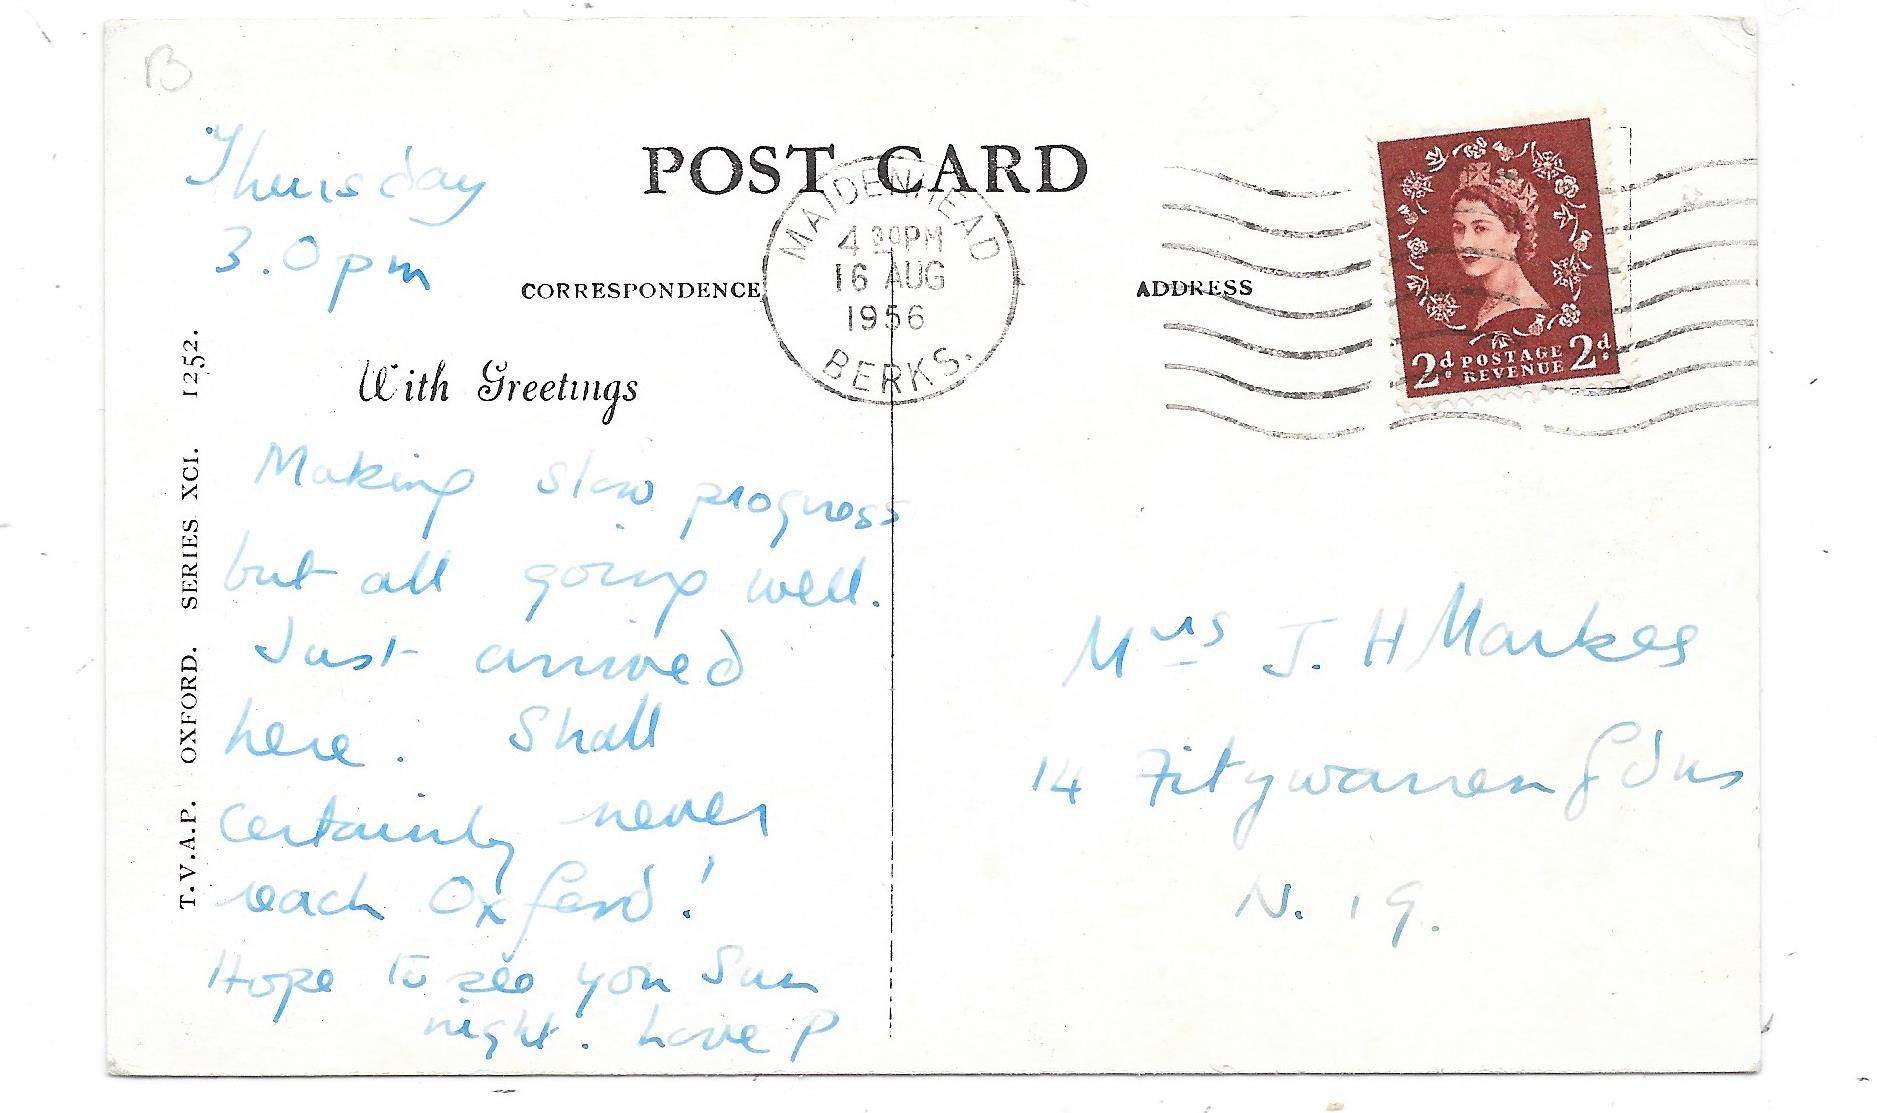 B
Thursday
3.0pm
POST CARD
CORRESPONDENCE
ADDRESS
MAIDENHEAD
4 30PM
16 AUG
1956
BERKS.
2d POSTAGE REVENUE 2d
With Greetings
Making slow progress
but all going well.
Just arrived
here. Shall
certainly never
reach Oxford!
Hope to see you Sun
night. Love P
Mrs J. H Markes
14 Fitzwarren Gdns
N. 19.
T.V.A.P. OXFORD. SERIES XCI. 1252.